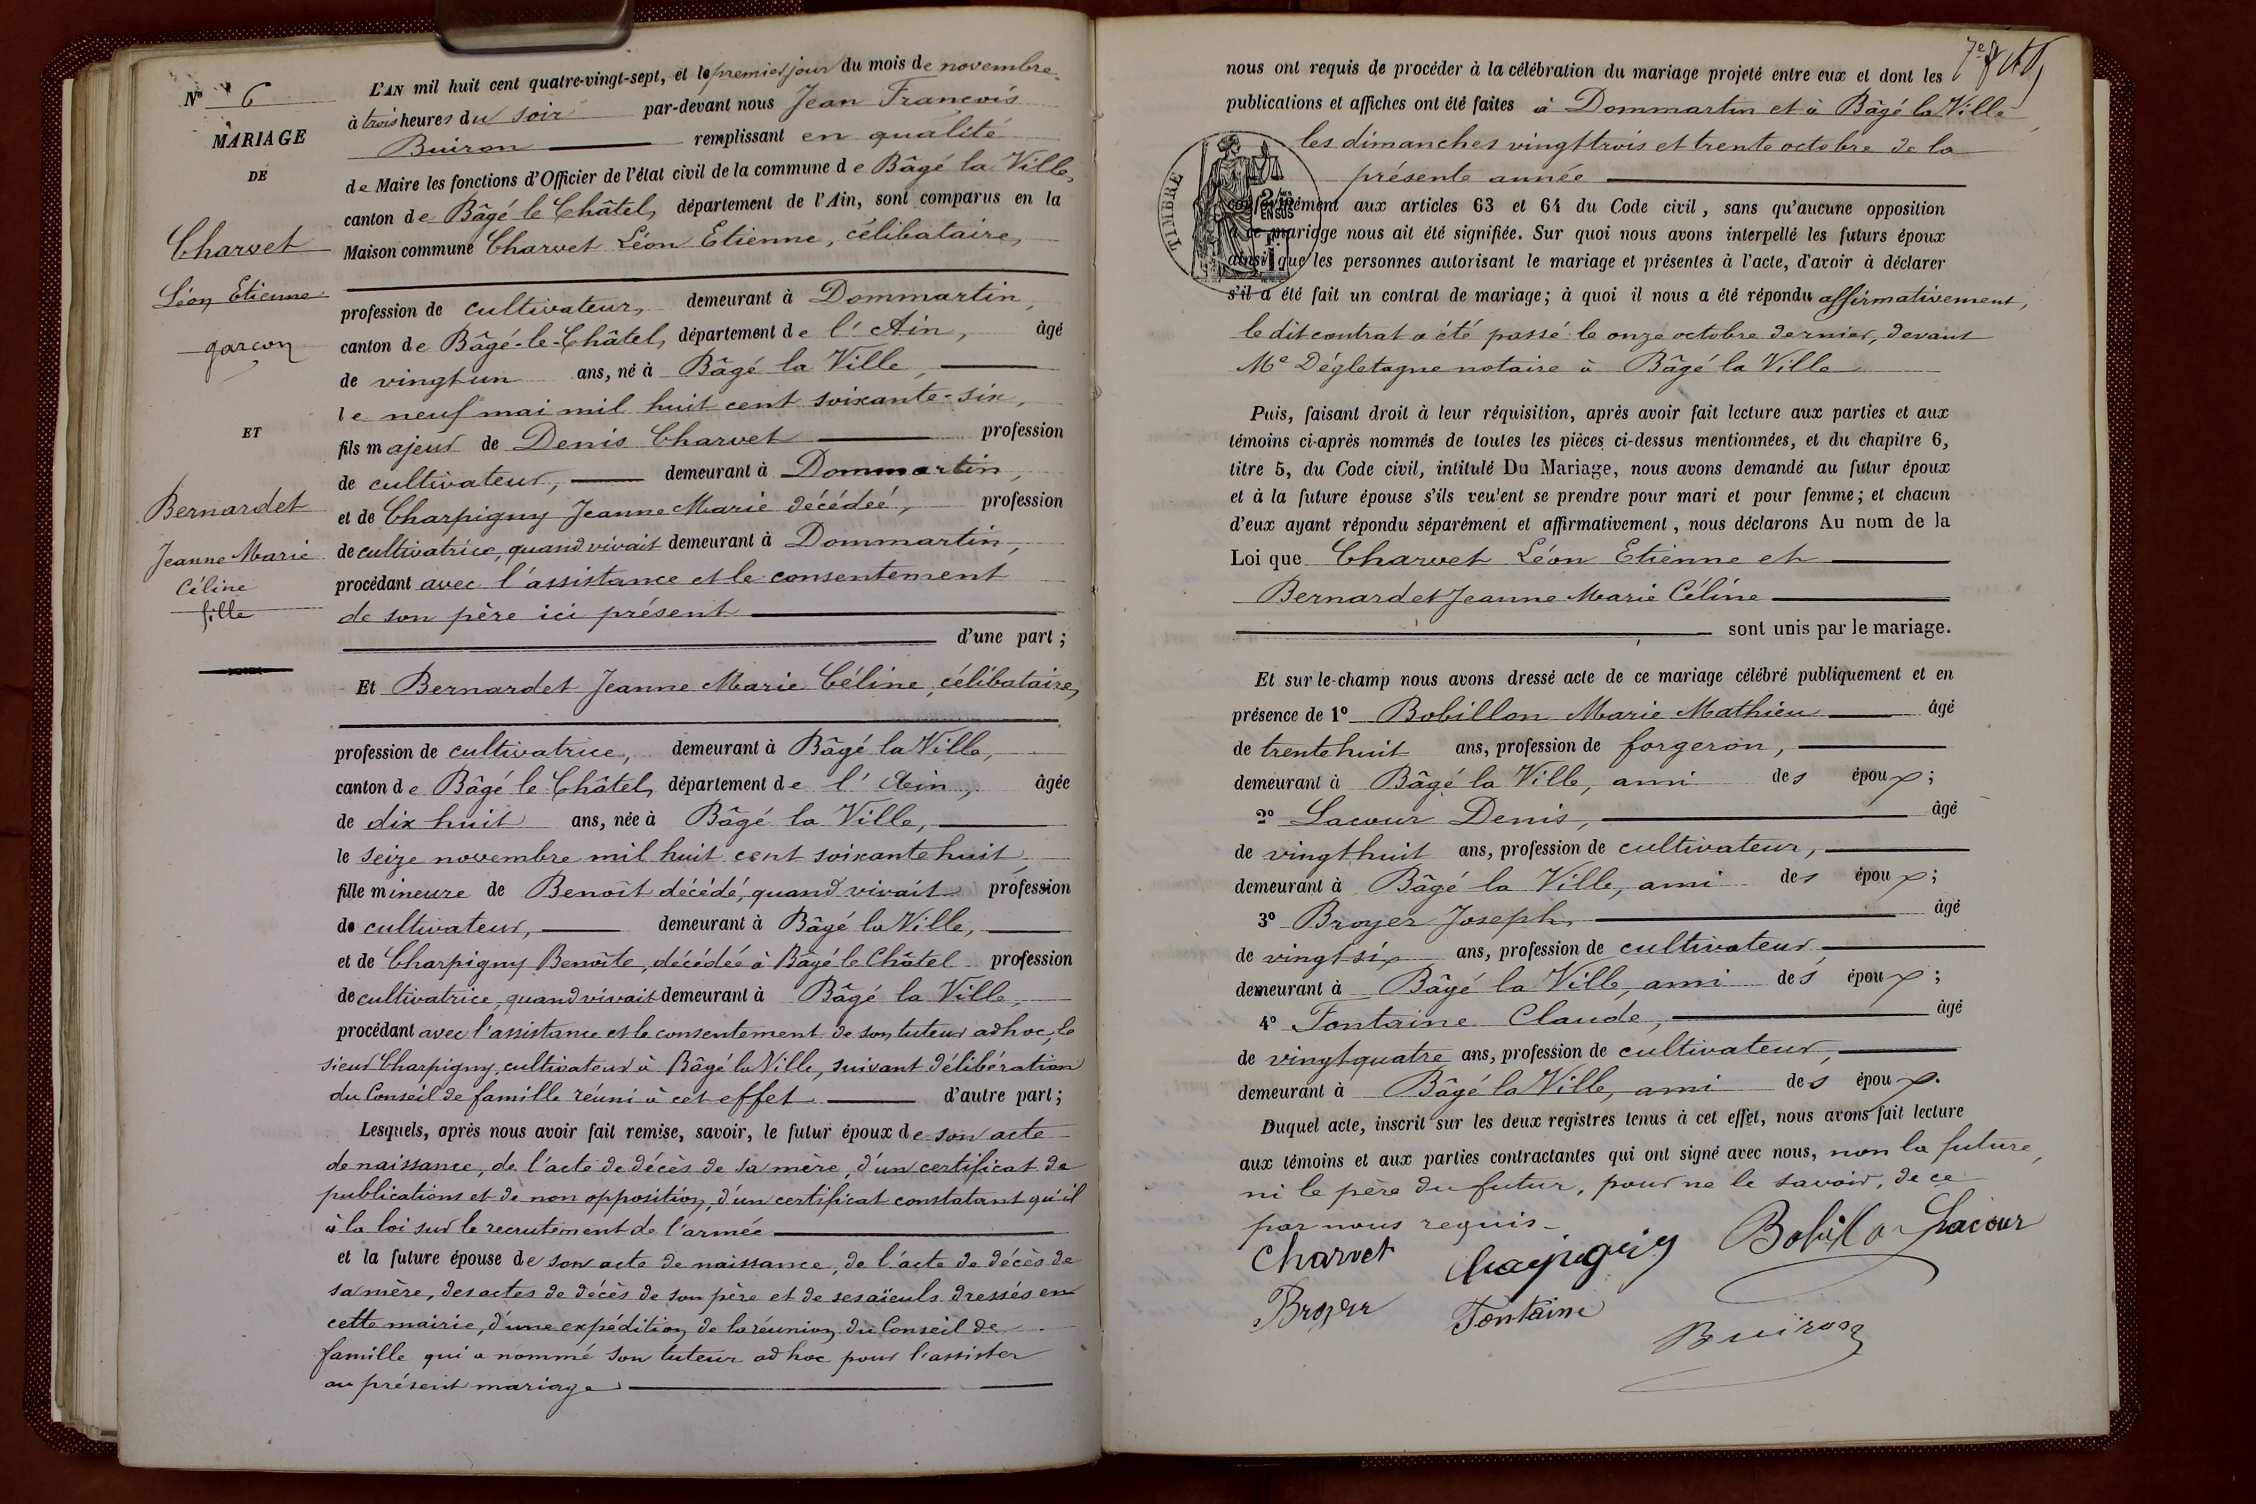 N° 6
MARIAGE
DE
Charvet
Léon Etienne
garçon
ET
Bernardet
Jeanne Marie
Céline
fille
L'AN mil huit cent quatre-vingt-sept, et le premier jour du mois de novembre
à trois heures du soir par-devant nous Jean François
Buiron remplissant en qualité
de Maire les fonctions d'Officier de l'état civil de la commune de Bâgé la Ville,
canton de Bâgé le Châtel, département de l'Ain, sont comparus en la
Maison commune Charvet Léon Etienne, célibataire,
profession de cultivateur, demeurant à Dommartin,
canton de Bâgé-le-Châtel, département de l'Ain, âgé
de vingt un ans, né à Bâgé la Ville,
le neuf mai mil huit cent soixante-six,
fils majeur de Denis Charvet profession
de cultivateur, demeurant à Dommartin,
et de Charpigny Jeanne Marie décédée, profession
de cultivatrice, quand vivait demeurant à Dommartin,
procédant avec l'assistance et le consentement
de son père ici présent
d'une part;
Et Bernardet Jeanne Marie Céline, célibataire,
profession de cultivatrice, demeurant à Bâgé la Ville,
canton de Bâgé le Châtel, département de l'Ain, âgée
de dix huit ans, née à Bâgé la Ville,
le seize novembre mil huit cent soixante huit
fille mineure de Benoît décédé, quand vivait profession
de cultivateur, demeurant à Bâgé la Ville,
et de Charpigny Benoîte, décédée à Bâgé le Châtel profession
de cultivatrice, quand vivait demeurant à Bâgé la Ville,
procédant avec l'assistance et le consentement de son tuteur ad hoc, le
sieur Charpigny, cultivateur à Bâgé la Ville, suivant délibération
du Conseil de famille réuni à cet effet d'autre part;
Lesquels, après nous avoir fait remise, savoir, le futur époux de son acte
de naissance, de l'acte de décès de sa mère, d'un certificat de
publications et de non opposition, d'un certificat constatant qu'il
à la loi sur le recrutement de l'armée
et la future épouse de son acte de naissance, de l'acte de décès de
sa mère, des actes de décès de son père et de ses aïeuls dressés en
cette mairie, d'une expédition de la réunion du Conseil de
famille qui a nommé son tuteur ad hoc pour l'assister
au présent mariage
7e
nous ont requis de procéder à la célébration du mariage projeté entre eux et dont les
publications et affiches ont été faites à Dommartin et à Bâgé la Ville
les dimanches vingt trois et trente octobre de la
présente année
TIMBRE
2/10 EN SUS
conformément aux articles 63 et 64 du Code civil, sans qu'aucune opposition
à ce mariage nous ait été signifiée. Sur quoi nous avons interpellé les futurs époux
ainsi que les personnes autorisant le mariage et présentes à l'acte, d'avoir à déclarer
s'il a été fait un contrat de mariage; à quoi il nous a été répondu affirmativement,
le dit contrat a été passé le onze octobre dernier, devant
Me Dégletagne notaire à Bâgé la Ville
Puis, faisant droit à leur réquisition, après avoir fait lecture aux parties et aux
témoins ci-après nommés de toutes les pièces ci-dessus mentionnées, et du chapitre 6,
titre 5, du Code civil, intitulé Du Mariage, nous avons demandé au futur époux
et à la future épouse s'ils veulent se prendre pour mari et pour femme; et chacun
d'eux ayant répondu séparément et affirmativement, nous déclarons Au nom de la
Loi que Charvet Léon Etienne et
Bernardet Jeanne Marie Céline
sont unis par le mariage.
Et sur-le-champ nous avons dressé acte de ce mariage célébré publiquement et en
présence de 1° Bobillon Marie Mathieu âgé
de trente huit ans, profession de forgeron,
demeurant à Bâgé la Ville, ami des époux;
2° Lacour Denis, âgé
de vingt huit ans, profession de cultivateur,
demeurant à Bâgé la Ville, ami des époux;
3° Broyer Joseph, âgé
de vingt six ans, profession de cultivateur,
demeurant à Bâgé la Ville, ami des époux;
4° Fontaine Claude, âgé
de vingt quatre ans, profession de cultivateur,
demeurant à Bâgé la Ville, ami des époux.
Duquel acte, inscrit sur les deux registres tenus à cet effet, nous avons fait lecture
aux témoins et aux parties contractantes qui ont signé avec nous, non la future,
ni le père du futur, pour ne le savoir, de ce
par nous requis.
Charvet Charpigny Bobillon Lacour
Broyer Fontaine
Buiron